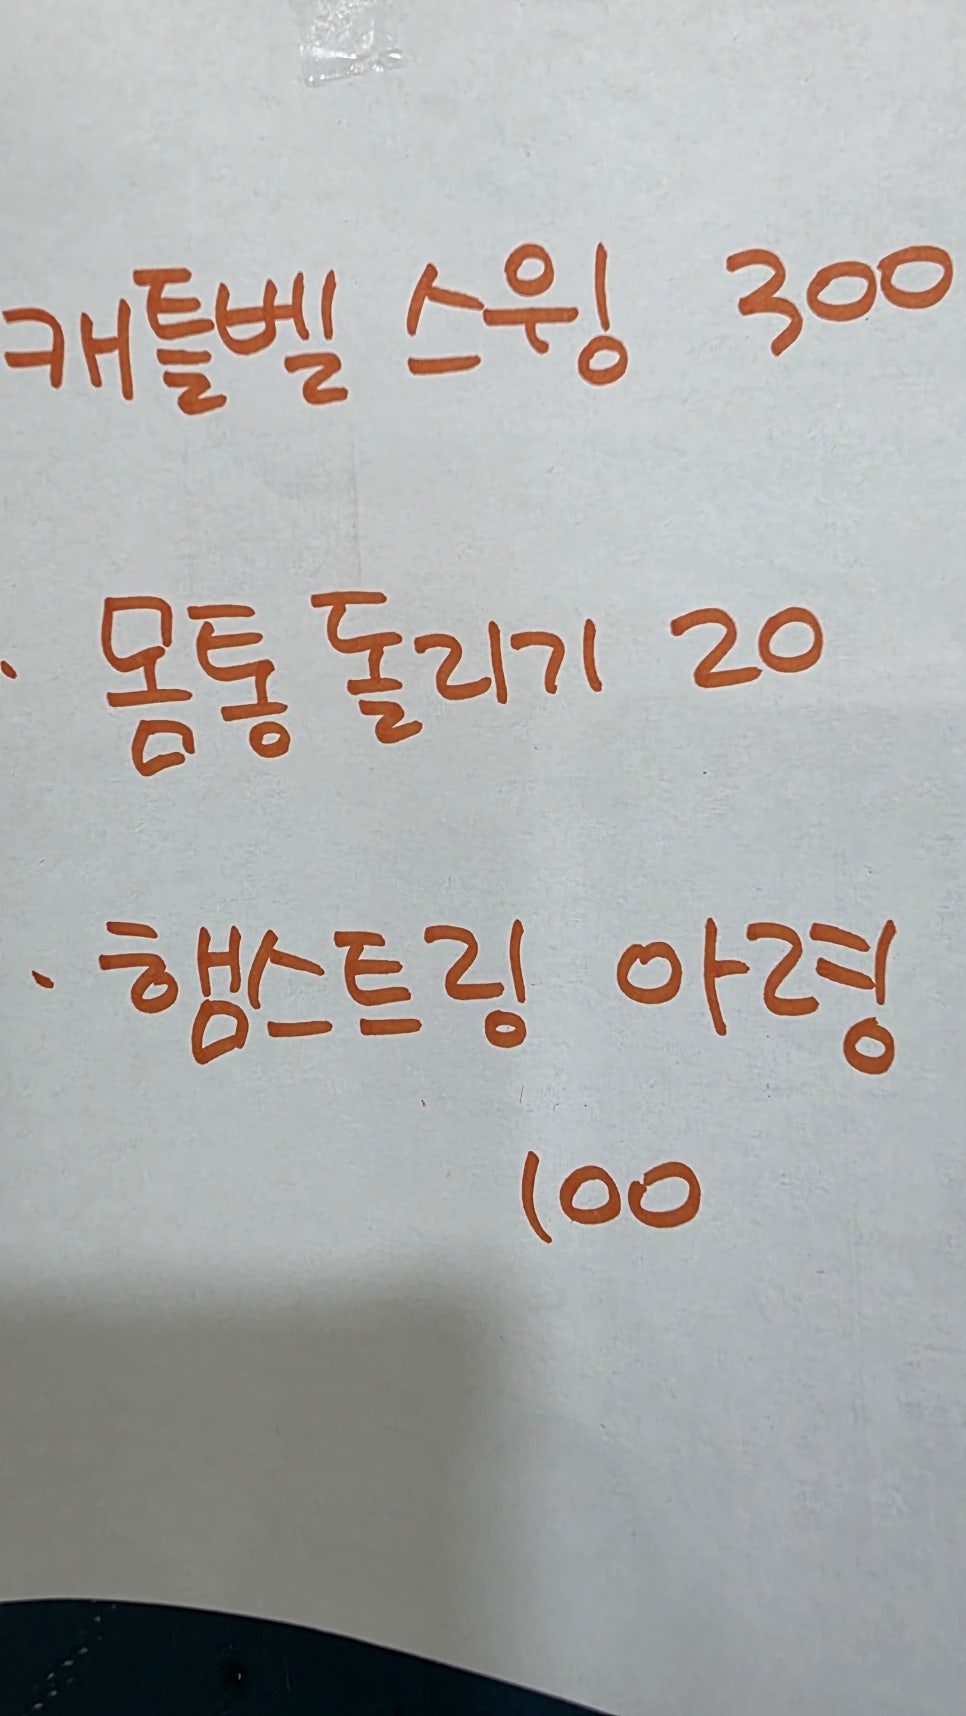 캐틀벨 스윙 300
· 몸통 돌리기 20
· 햄스트링 아령
100